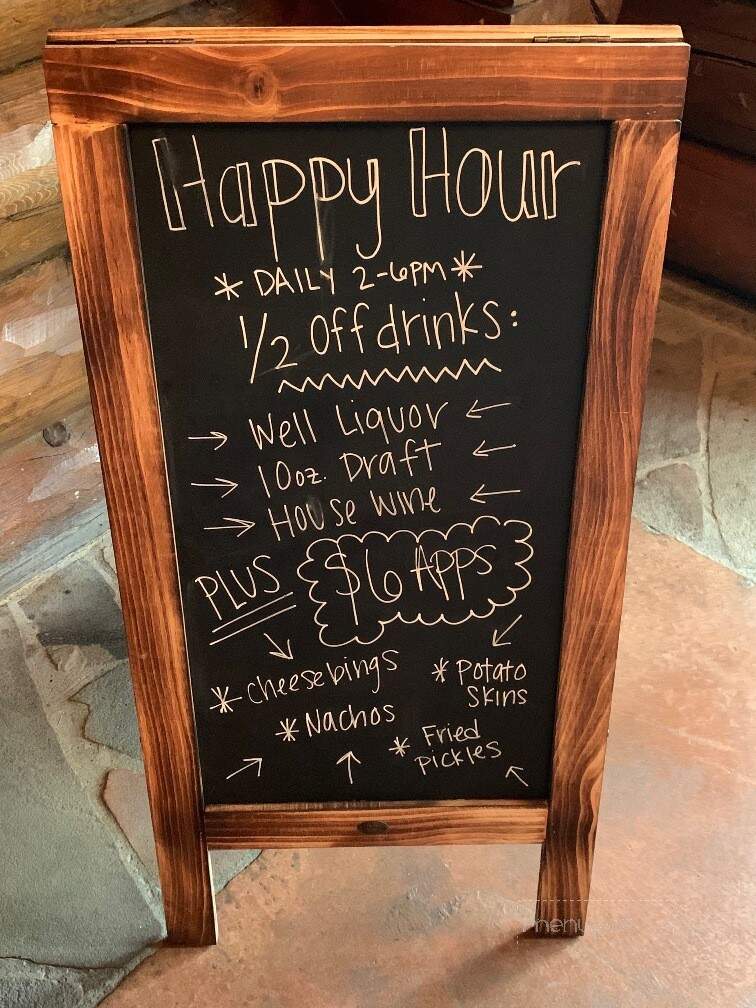 Happy Hour
* DAILY 2-6PM *
1/2 off drinks:
→ Well Liquor ←
→ 10oz. Draft ←
→ House Wine ←
PLUS $6 APPS
* Cheesebings
* Potato Skins
* Nachos
* Fried Pickles
menu